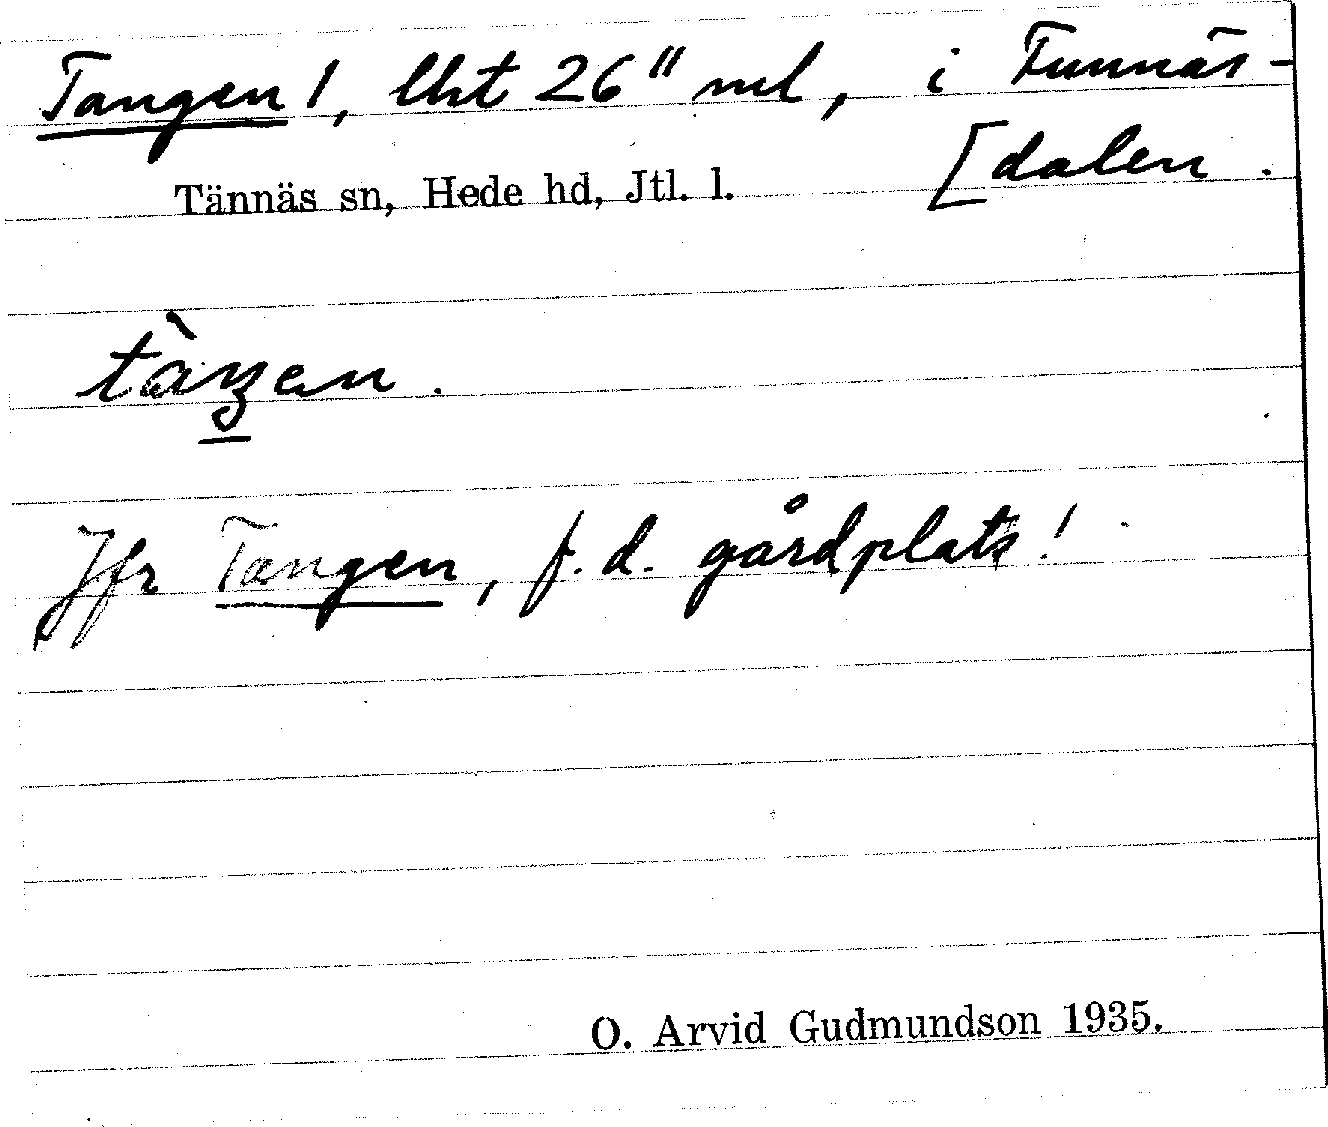 Tangen!, lht 26" ml, i Funnäs-
[dalen.
Tännäs sn, Hede hd, Jtl. l.
tàŋen.
Jfr Tangen, f.d. gårdplats!
O. Arvid Gudmundson 1935.